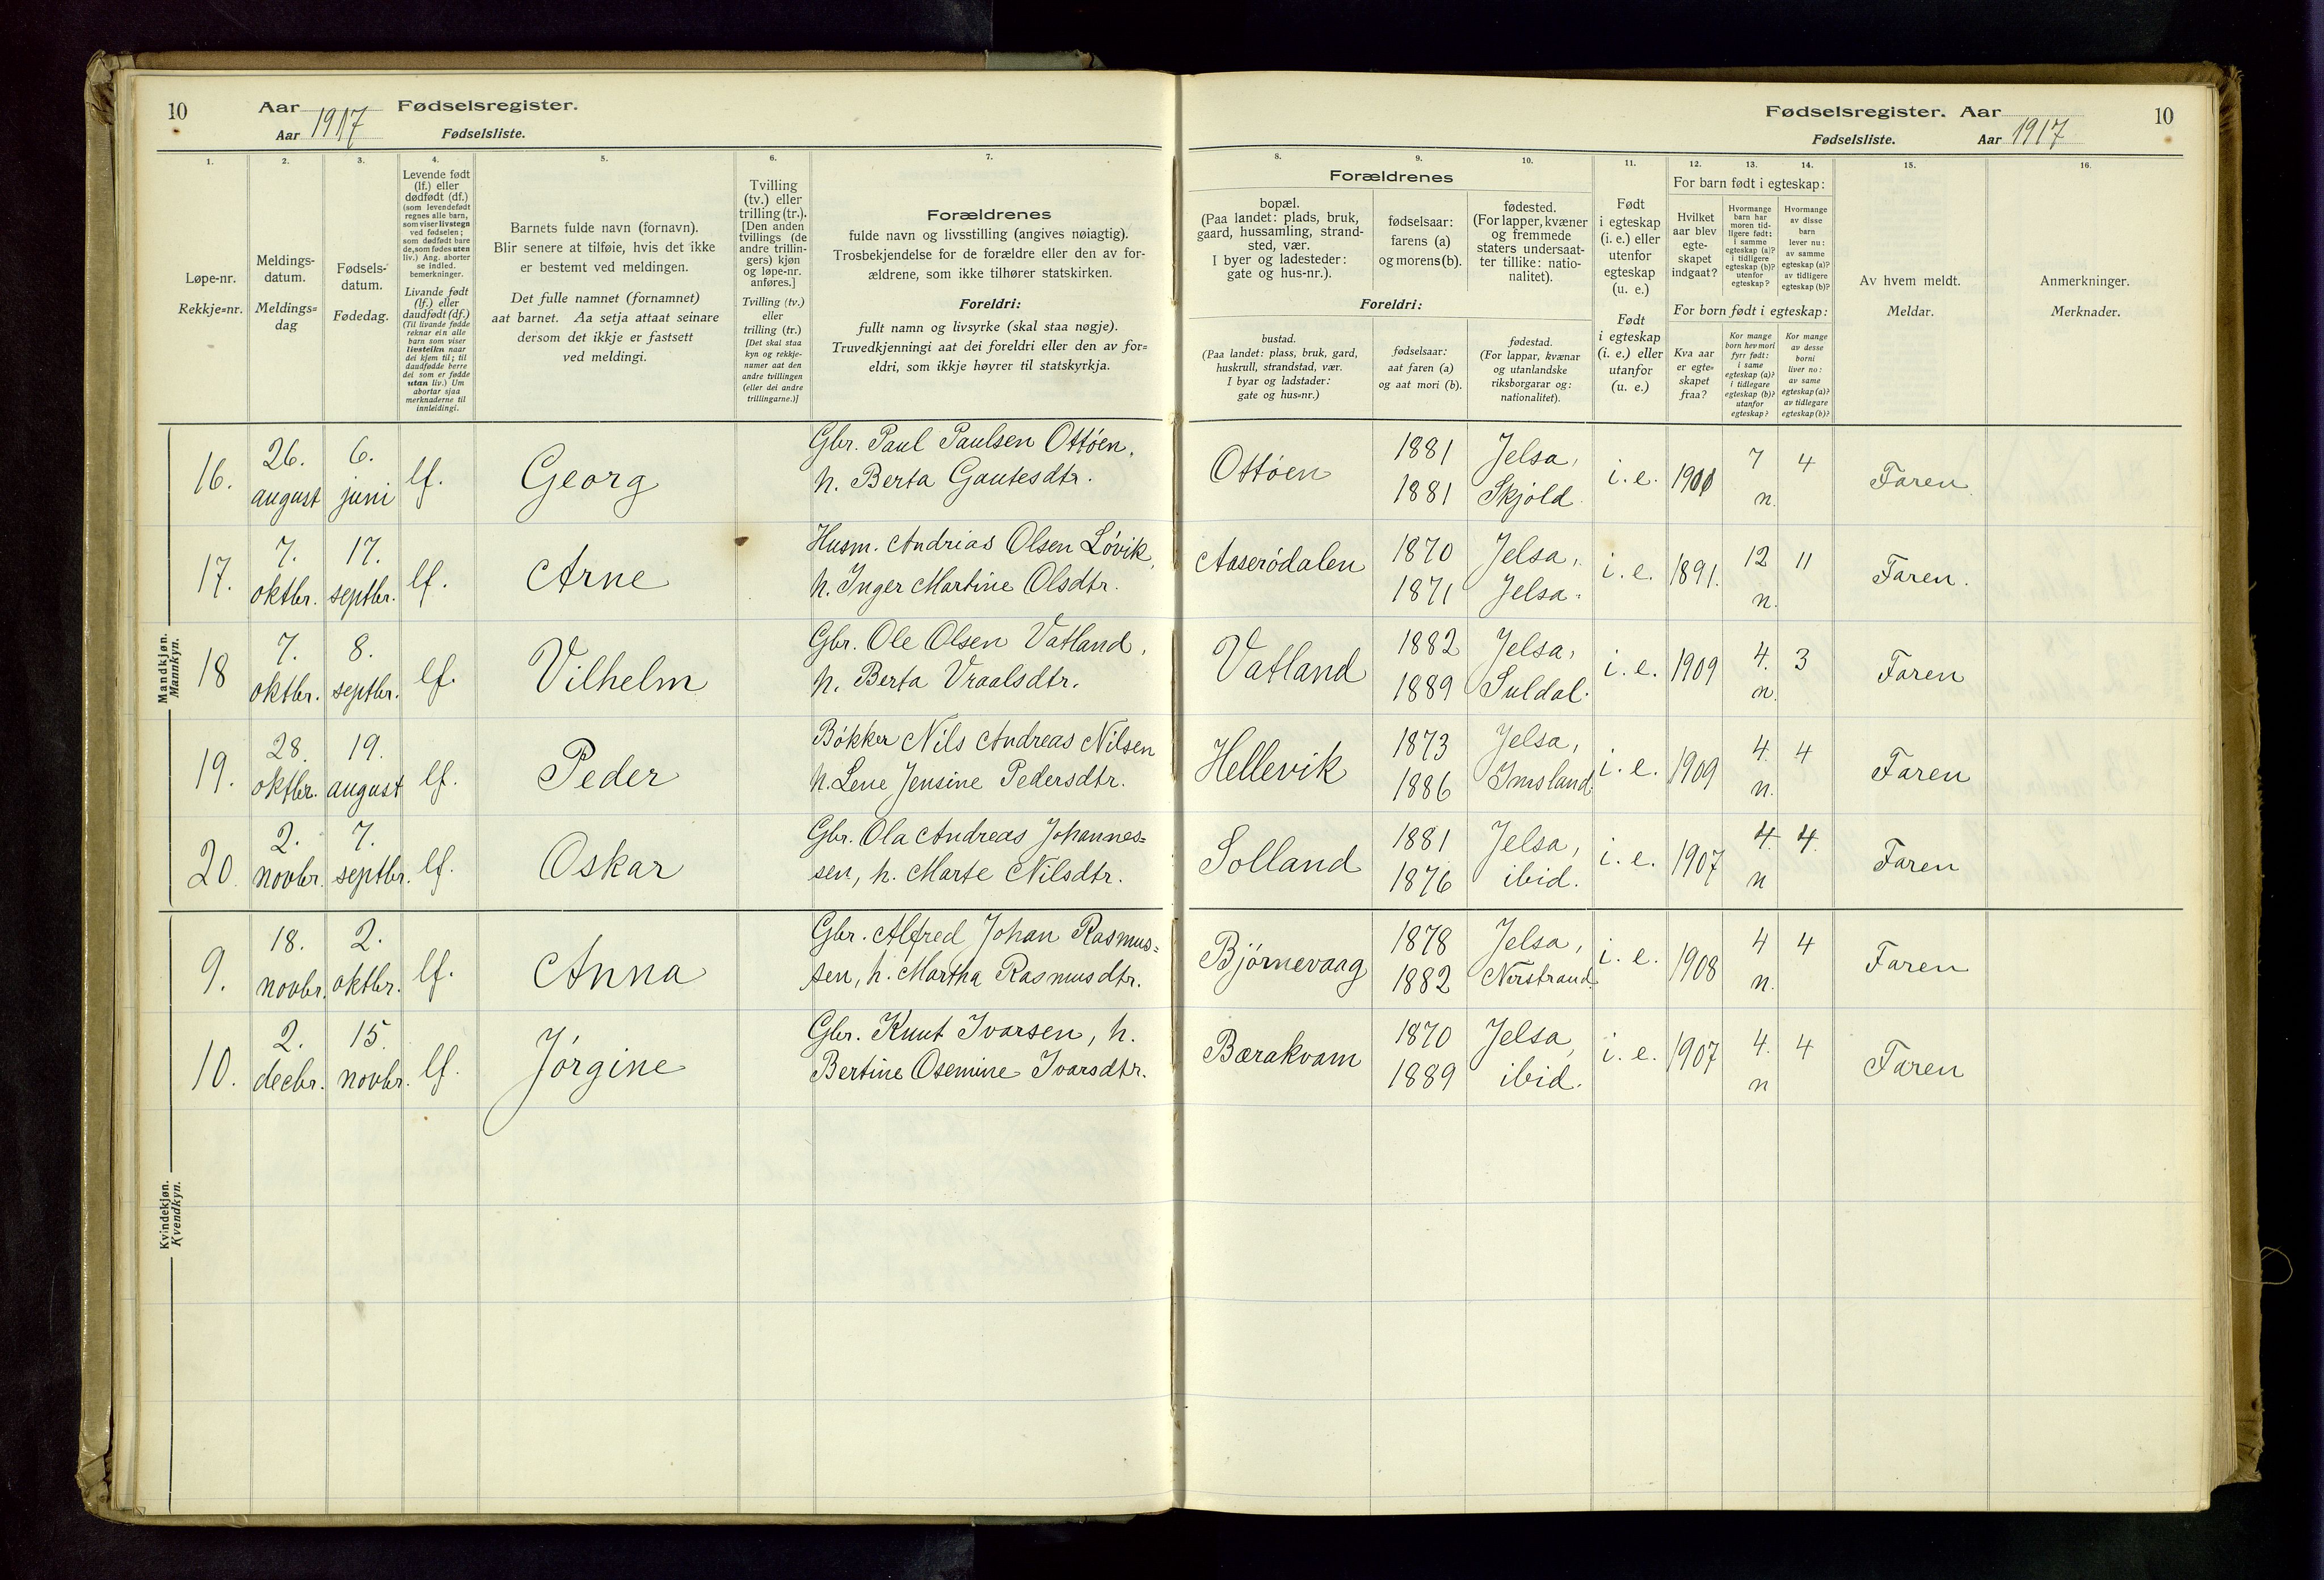 10 Aar Fødselsregister.
Aar 1917 Fødselsliste.
1. 2. 3. 4. 5. 6. 7.
Løpe-nr.
Rekkje=nr.
Meldings-
datum.
Meldings=
dag
Fødsels-
datum.
Fødedag.
Levende født
(lf.) eller
dødfødt (df.)
(som levendefødt
regnes alle barn,
som viser livstegn
ved fødselen;
som dødfødt bare
de, som fødes uten
liv.) Ang. aborter
se indled.
bemerkninger.
Livande født
(lf.) eller
daudfødt (df.)
(Til livande fødde
reknar ein alle
barn som viser
livsteikn naar
dei kjem til; til
daudfødde berre
dei som er fødde
utan liv.) Um
abortar sjaa
merknaderne til
innleidingi.
Barnets fulde navn (fornavn).
Blir senere at tilføie, hvis det ikke
er bestemt ved meldingen.
Det fulle namnet (fornamnet)
aat barnet. Aa setja attaat seinare
dersom det ikkje er fastsett
ved meldingi.
Tvilling
(tv.) eller
trilling (tr.).
[Den anden
tvillings (de
andre trillin-
gers) kjøn
og løpe-nr.
anføres.]
Tvilling (tv.)
eller
trilling (tr.)
[Det skal staa
kyn og rekkje-
numer aat den
andre tvillingen
(eller dei andre
trillingarne.)]
Forældrenes
fulde navn og livsstilling (angives nøiagtig).
Trosbekjendelse for de forældre eller den av for-
ældrene, som ikke tilhører statskirken.
Foreldri:
fullt namn og livsyrke (skal staa nøgje).
Truvedkjenningi aat dei foreldri eller den av for=
eldri, som ikkje høyrer til statskyrkja.
Mandkjøn.
Mannkyn.
16. 26. august 6. juni lf. Georg
Gbr. Paul Paulsen Ottøen,
h. Berta Gautesdtr.
17. 7. oktbr. 17. septbr. lf. Arne
Husm. Andrias Olsen Løvik,
h. Inger Martine Olsdtr.
18 7. oktbr. 8. septbr. lf. Vilhelm
Gbr. Ole Olsen Vatland,
h. Berta Vraalsdtr.
19. 28. oktbr. 19. august lf. Peder
Bøkker Nils Andreas Nilsen
h. Lene Jensine Pedersdtr.
20. 2. novbr. 7. septbr. lf. Oskar
Gbr. Ola Andreas Johannes=
sen, h. Marte Nilsdtr.
Kvindekjøn.
Kvendkyn.
9. 18. novbr. 2. oktbr. lf. Anna
Gbr. Alfred Johan Rasmus=
sen, h. Martha Rasmusdtr.
10. 2. decbr. 15. novbr. lf. Jørgine
Gbr. Knut Ivarsen, h.
Bertine Osemine Ivarsdtr.
Fødselsregister. Aar 10
Fødselsliste. Aar 1917
8. 9. 10. 11. 12. 13. 14. 15. 16.
Forældrenes
bopæl.
(Paa landet: plads, bruk,
gaard, hussamling, strand-
sted, vær.
I byer og ladesteder:
gate og hus-nr.).
fødselsaar:
farens (a)
og morens (b).
fødested.
(For lapper, kvæner
og fremmede
staters undersaat-
ter tillike: natio-
nalitet).
Foreldri:
bustad.
(Paa landet: plass, bruk, gard,
huskrull, strandstad, vær.
I byar og ladstader:
gate og hus=nr.)
fødselsaar:
aat faren (a)
og aat mori (b).
fødestad.
(For lappar, kvænar
og utanlandske
riksborgarar og:
nationalitet).
Født
i egteskap
(i. e.) eller
utenfor
egteskap
(u. e.)
Født
i egteskap
(i. e.) eller
utanfor
(u. e.)
For barn født i egteskap:
Hvilket
aar blev
egte-
skapet
indgaat?
Hvormange
barn har
moren tid-
ligere født:
i samme
egteskap (a)?
i tidligere
egteskap (b)?
utenfor
egteskap?
Hvormange
av disse
barn
lever nu:
av samme
egteskap (a)?
av tidligere
egteskap (b)?
For born født i egteskap:
Kva aar
er egte=
skapet
fraa?
Kor mange
born hev mori
fyrr født:
i same
egteskap (a)?
i tidlegare
egteskap (b)?
utanfor
egteskap?
Kor mange
av desse
borni
liver no:
av same
egteskap (a)?
av tidlegare
egteskap (b)?
Av hvem meldt.
Meldar.
Anmerkninger.
Merknader.
Ottøen 1881 Jelsa, i. e. 1900 7 4 Faren
1881 Skjold n.
Aaserødalen 1870 Jelsa, i. e. 1891. 12 11 Faren.
1871 Jelsa. n.
Vatland 1882 Jelsa, i. e. 1909 4. 3 Faren
1889 Suldal. n.
Hellevik 1873 Jelsa, i. e. 1909 4. 4 Faren
1886 Imsland. n.
Solland 1881 Jelsa, i. e. 1907 4. 4. Faren
1876 ibid. n
Bjørnevaag 1878 Jelsa, i. e. 1908 4 4 Faren
1882 Nerstrand. n.
Bærakvam 1870 Jelsa, i. e. 1907 4. 4 Faren
1889 ibid. n